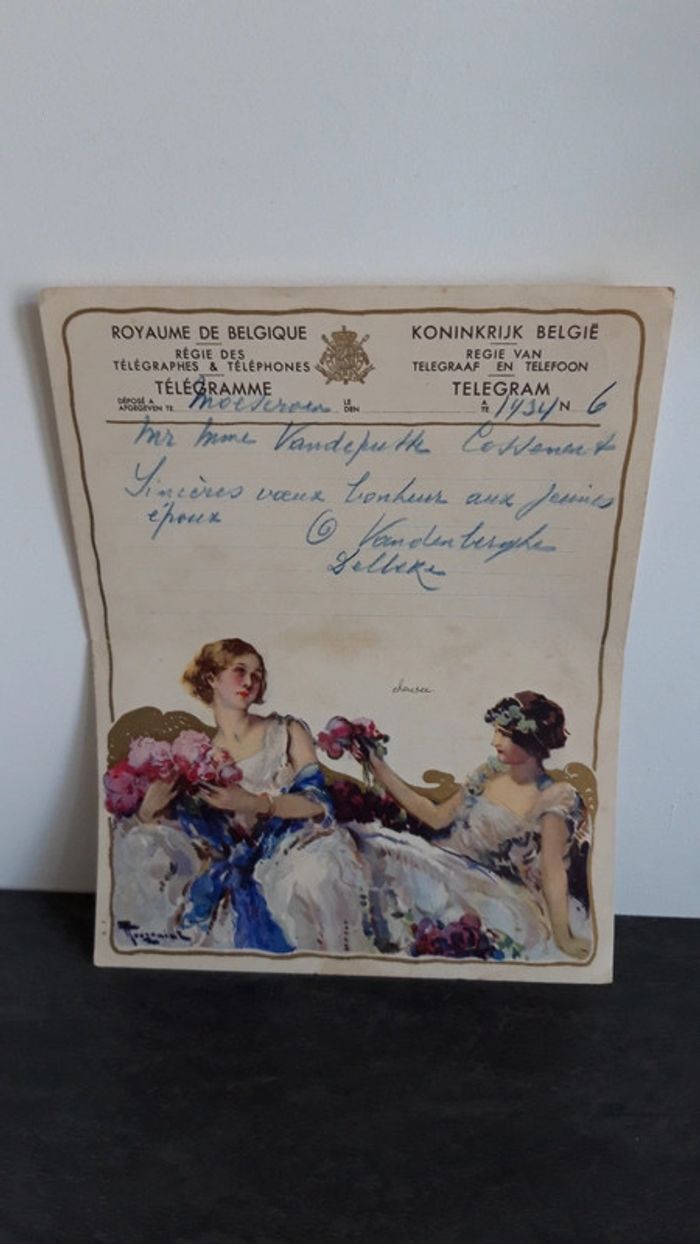 ROYAUME DE BELGIQUE
RÉGIE DES
TÉLÉGRAPHES & TÉLÉPHONES
TÉLÉGRAMME
KONINKRIJK BELGIË
REGIE VAN
TELEGRAAF EN TELEFOON
TELEGRAM
DÉPOSÉ A
AFGEGEVEN TE
LE
DEN
A
TE
N 6
Mr Mme Vandeputte
Sincères vœux bonheur aux jeunes
époux
Vandenberghe